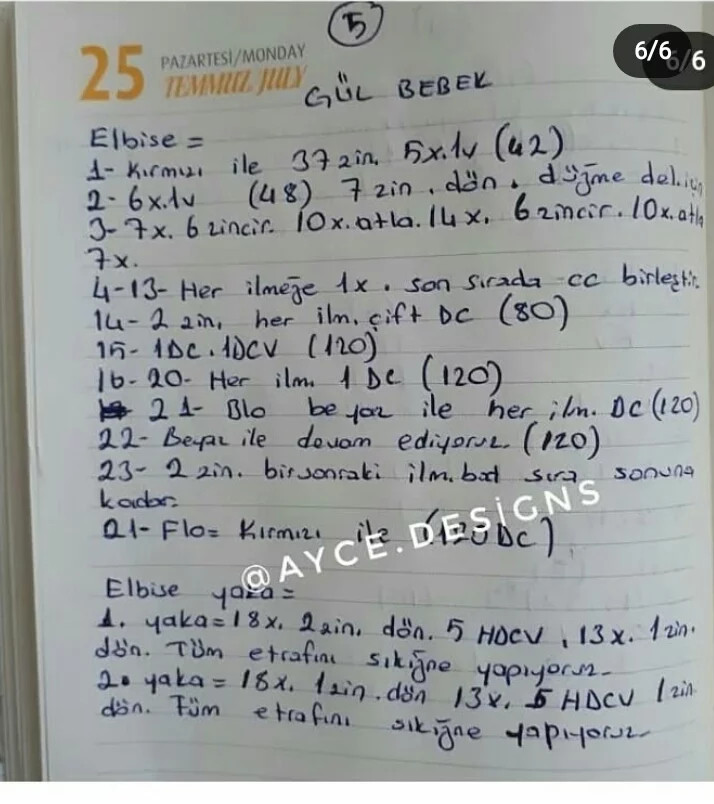 5
6/6
6/6
25 PAZARTESİ/MONDAY
TEMMUZ JULY
GÜL BEBEK
Elbise =
1- Kırmızı ile 37 zin. 5x.1v (42)
2- 6x.1v (48) 7 zin. dön. düğme del.için
3- 7x. 6 zincir. 10x.atla. 14x. 6 zincir. 10x.atla
7x.
4-13- Her ilmeğe 1x. son sırada cc birleştir.
14- 2 zin, her ilm. çift DC (80)
15- 1DC. 1DCV (120)
16-20- Her ilm. 1 DC (120)
21- Blo beyaz ile her ilm. DC (120)
22- Beyaz ile devam ediyoruz (120)
23- 2 zin. bir sonraki ilm. bat sıra sonuna
kadar.
21- Flo= Kırmızı ile (120 DC)
@AYCE.DESİGNS
Elbise yaka=
1. yaka= 18x. 2zin. dön. 5 HDCV, 13x. 1zin.
dön. Tüm etrafını sık iğne yapıyoruz.
2. yaka= 18x. 1zin. dön 13x. 5 HDCV 1zin
dön. Tüm etrafını sık iğne yapıyoruz